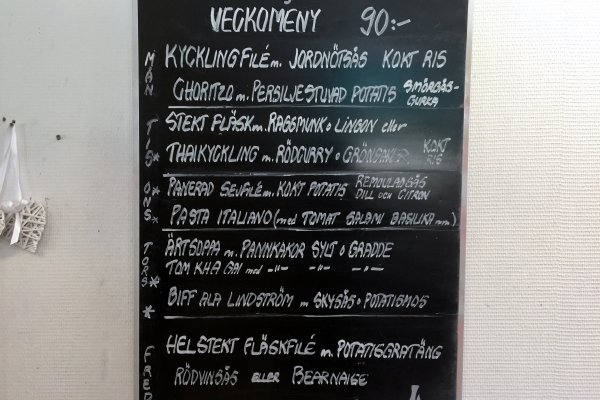 VECKOMENY 90:-
MÅN
KYCKLINGFILÉ m. JORDNÖTSÅS KOKT RIS
CHORITZO m. PERSILJESTUVAD POTATIS SMÖRGÅS-
GURKA
TIS
STEKT FLÄSK m. RAGGMUNK o LINGON eller
THAIKYCKLING m. RÖDCURRY o KOKT
RIS
ONS
PANERAD SEJFILÉ m. KOKT POTATIS REMOULADSÅS
DILL och CITRON
PASTA ITALIANO (med TOMAT SALAMI BASILIKA mm)
TORS
ÄRTSOPPA m. PANNKAKOR SYLT o GRÄDDE
TOM KHA GAI med -"- -"- -"-
BIFF ALA LINDSTRÖM m SKYSÅS o POTATISMOS
FRED
HELSTEKT FLÄSKFILÉ m. POTATISGRATÄNG
RÖDVINSÅS ELLER BEARNAISE